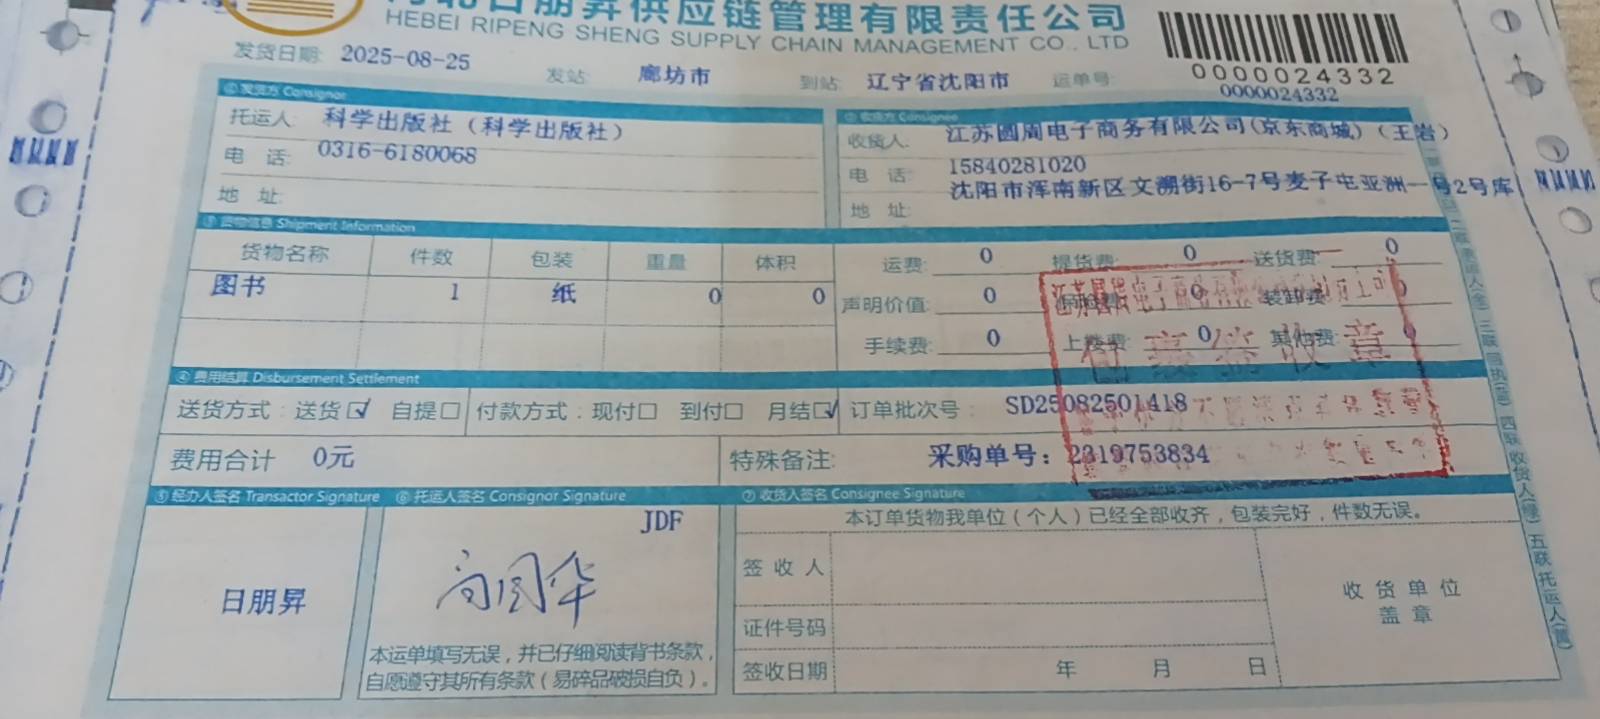 日朋昇供应链管理有限责任公司
HEBEI RIPENG SHENG SUPPLY CHAIN MANAGEMENT CO., LTD
0000024332
0000024332
发货日期: 2025-08-25 发站: 廊坊市 到站: 辽宁省沈阳市 运单号:
① 发货方 Consignor
托运人: 科学出版社（科学出版社）
电 话: 0316-6180068
地 址:
② 收货方 Consignee
收货人: 江苏圆周电子商务有限公司(京东商城)（王岩）
电 话: 15840281020
地 址: 沈阳市浑南新区文溯街16-7号麦子屯亚洲一号2号库
③ 货物信息 Shipment Information
货物名称 件数 包装 重量 体积
图书 1 纸 0 0
运费: 0 提货费: 0 送货费: 0
声明价值: 0 保险费: 0 装卸费: 0
手续费: 0 上楼费: 0 其他费: 0
④ 费用结算 Disbursement Settlement
送货方式: 送货☑ 自提□ 付款方式: 现付□ 到付□ 月结☑ 订单批次号: SD25082501418
费用合计 0元 特殊备注: 采购单号: 2319753834
⑤ 经办人签名 Transactor Signature ⑥ 托运人签名 Consignor Signature ⑦ 收货人签名 Consignee Signature
日朋昇
JDF
本运单填写无误，并已仔细阅读背书条款，
自愿遵守其所有条款（易碎品破损自负）。
本订单货物我单位（个人）已经全部收齐，包装完好，件数无误。
签 收 人
证件号码
签收日期 年 月 日
收 货 单 位
盖 章